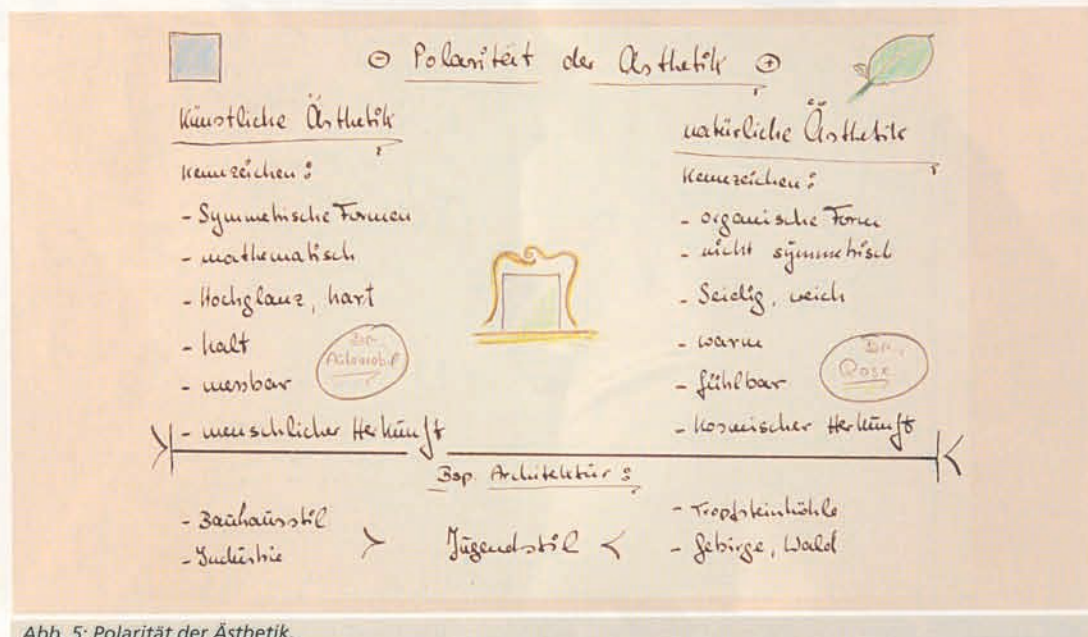 ⊖ Polarität der Ästhetik ⊕
künstliche Ästhetik
Kennzeichen:
- Symmetrische Formen
- mathematisch
- Hochglanz, hart
- kalt
- messbar
- menschlicher Herkunft
Bsp. Automobil
natürliche Ästhetik
Kennzeichen:
- organische Form
- nicht symmetrisch
- Seidig, weich
- warm
- fühlbar
- kosmischer Herkunft
Bsp. Rose
Bsp. Architektur:
- Bauhausstil
- Industrie
> Jugendstil <
- Tropfsteinhöhle
- Gebirge, Wald
Abb. 5: Polarität der Ästhetik.